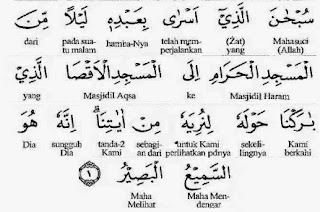 سُبْحٰنَ الَّذِيْٓ اَسْرٰى بِعَبْدِهٖ لَيْلًا مِّنَ
Mahasuci (Allah) (Zat) yang telah mem-perjalankan hamba-Nya pada sua-tu malam dari
الْمَسْجِدِ الْحَرَامِ اِلَى الْمَسْجِدِ الْاَقْصَا الَّذِيْ
Masjidil Haram ke Masjidil Aqsa yang
بٰرَكْنَا حَوْلَهٗ لِنُرِيَهٗ مِنْ اٰيٰتِنَاۗ اِنَّهٗ هُوَ
Kami berkahi sekeli-lingnya untuk Kami perlihatkan pdnya sebagi-an dari tanda-2 Kami sungguh Dia Dia
السَّمِيْعُ الْبَصِيْرُ ١
Maha Men-dengar Maha Melihat